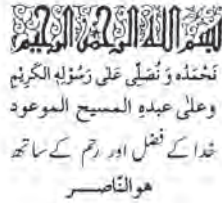 بسم الله الرحمن الرحيم
نَحْمَدُهٗ وَ نُصَلِّی عَلٰی رَسُوْلِهِ الْكَرِیْمِ
وعلیٰ عبدہ المسیح الموعود
خدا کے فضل اور رحم کے ساتھ
هوالنّاصر